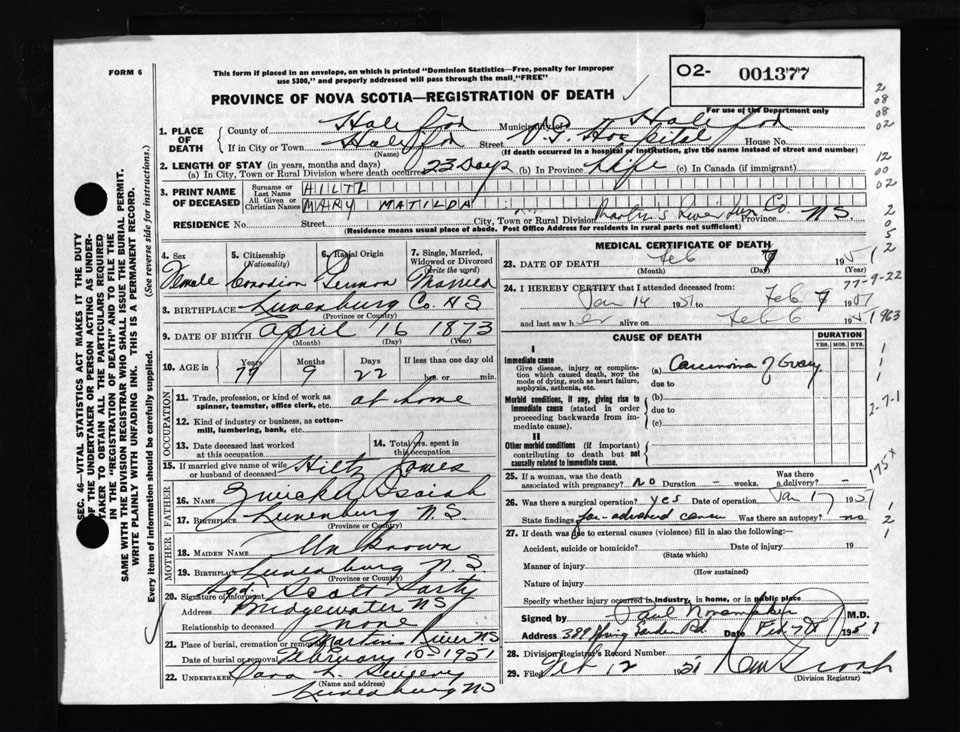 FORM 6
This form if placed in an envelope, on which is printed "Dominion Statistics—Free, penalty for improper
use $300," and properly addressed will pass through the mail "FREE"
O2- 001377
PROVINCE OF NOVA SCOTIA—REGISTRATION OF DEATH
For use of the Department only
1. PLACE OF DEATH
County of Halifax Municipality of Halifax
If in City or Town Halifax Street V.G. Hospital House No.
(Name) (If death occurred in a hospital or institution, give the name instead of street and number)
2. LENGTH OF STAY (in years, months and days)
(a) In City, Town or Rural Division where death occurred 23 Days (b) In Province Life (c) In Canada (if immigrant)
3. PRINT NAME OF DECEASED
Surname or Last Name HILTZ
All Given or Christian Names MARY MATILDA
RESIDENCE No. Street City, Town or Rural Division Martin's River Lun. Co. Province N.S.
(Residence means usual place of abode. Post Office Address for residents in rural parts not sufficient)
4. Sex Female
5. Citizenship (Nationality) Canadian
6. Racial Origin German
7. Single, Married, Widowed or Divorced (write the word) Married
8. BIRTHPLACE Lunenburg Co. N S
(Province or Country)
9. DATE OF BIRTH April 16 1873
(Month) (Day) (Year)
10. AGE in Years 77 Months 9 Days 22 If less than one day old
hrs. or min.
OCCUPATION
11. Trade, profession, or kind of work as
spinner, teamster, office clerk, etc. at home
12. Kind of industry or business, as cotton-
mill, lumbering, bank, etc.
13. Date deceased last worked
at this occupation
14. Total yrs. spent in
this occupation
15. If married give name of wife
or husband of deceased Hiltz James
FATHER
16. NAME Zwicker Isaiah
17. BIRTHPLACE Lunenburg N.S.
(Province or Country)
MOTHER
18. MAIDEN NAME Unknown
19. BIRTHPLACE Lunenburg N.S
(Province or Country)
20. Signature of informant Sgd. Scott
Address Bridgewater NS
Relationship to deceased none
21. Place of burial, cremation or removal Martins River NS
Date of burial or removal February 10 1951
22. UNDERTAKER Sweeny
(Name and address)
Lunenburg NS
MEDICAL CERTIFICATE OF DEATH
23. DATE OF DEATH Feb 7 1951
(Month) (Day) (Year)
24. I HEREBY CERTIFY that I attended deceased from:
Jan 14 1951 to Feb 7 1951
and last saw her alive on Feb 6 1951
CAUSE OF DEATH
DURATION
YRS. MOS. DYS.
I
Immediate cause
Give disease, injury or complica-
tion which caused death, NOR the
mode of dying, such as heart failure,
asphyxia, asthenia, etc.
(a) Carcinoma of Ovary
due to
Morbid conditions, if any, giving rise to
immediate cause (stated in order
proceeding backwards from im-
mediate cause).
(b)
due to
(c)
II
Other morbid conditions (if important)
contributing to death but not
causally related to immediate cause.
25. If a woman, was the death
associated with pregnancy? NO Duration - weeks. Was there
a delivery? -
26. Was there a surgical operation? yes Date of operation Jan 17 1951
State findings far-advanced cancer Was there an autopsy? no
27. If death was due to external causes (violence) fill in also the following:—
Accident, suicide or homicide? Date of injury 19
(State which)
Manner of injury
(How sustained)
Nature of injury
Specify whether injury occurred in industry, in home, or in public place
Signed by M.D.
Address 389 Spring Garden Rd. Date Feb 7 1951
28. Division Registrar's Record Number
29. Filed Feb 12 1951
(Division Registrar)
SEC. 46—VITAL STATISTICS ACT MAKES IT THE DUTY
OF THE UNDERTAKER OR PERSON ACTING AS UNDER-
TAKER TO OBTAIN ALL THE PARTICULARS REQUIRED
IN THE "REGISTRATION OF DEATH" AND TO FILE THE
SAME WITH THE DIVISION REGISTRAR WHO SHALL ISSUE THE BURIAL PERMIT.
WRITE PLAINLY WITH UNFADING INK. THIS IS A PERMANENT RECORD.
Every item of information should be carefully supplied. (See reverse side for instructions.)
2
08
08
02
12
00
02
2
0
5
2
1
77-9-22
1963
1
1
1
2-7-1
175x
1
2
1